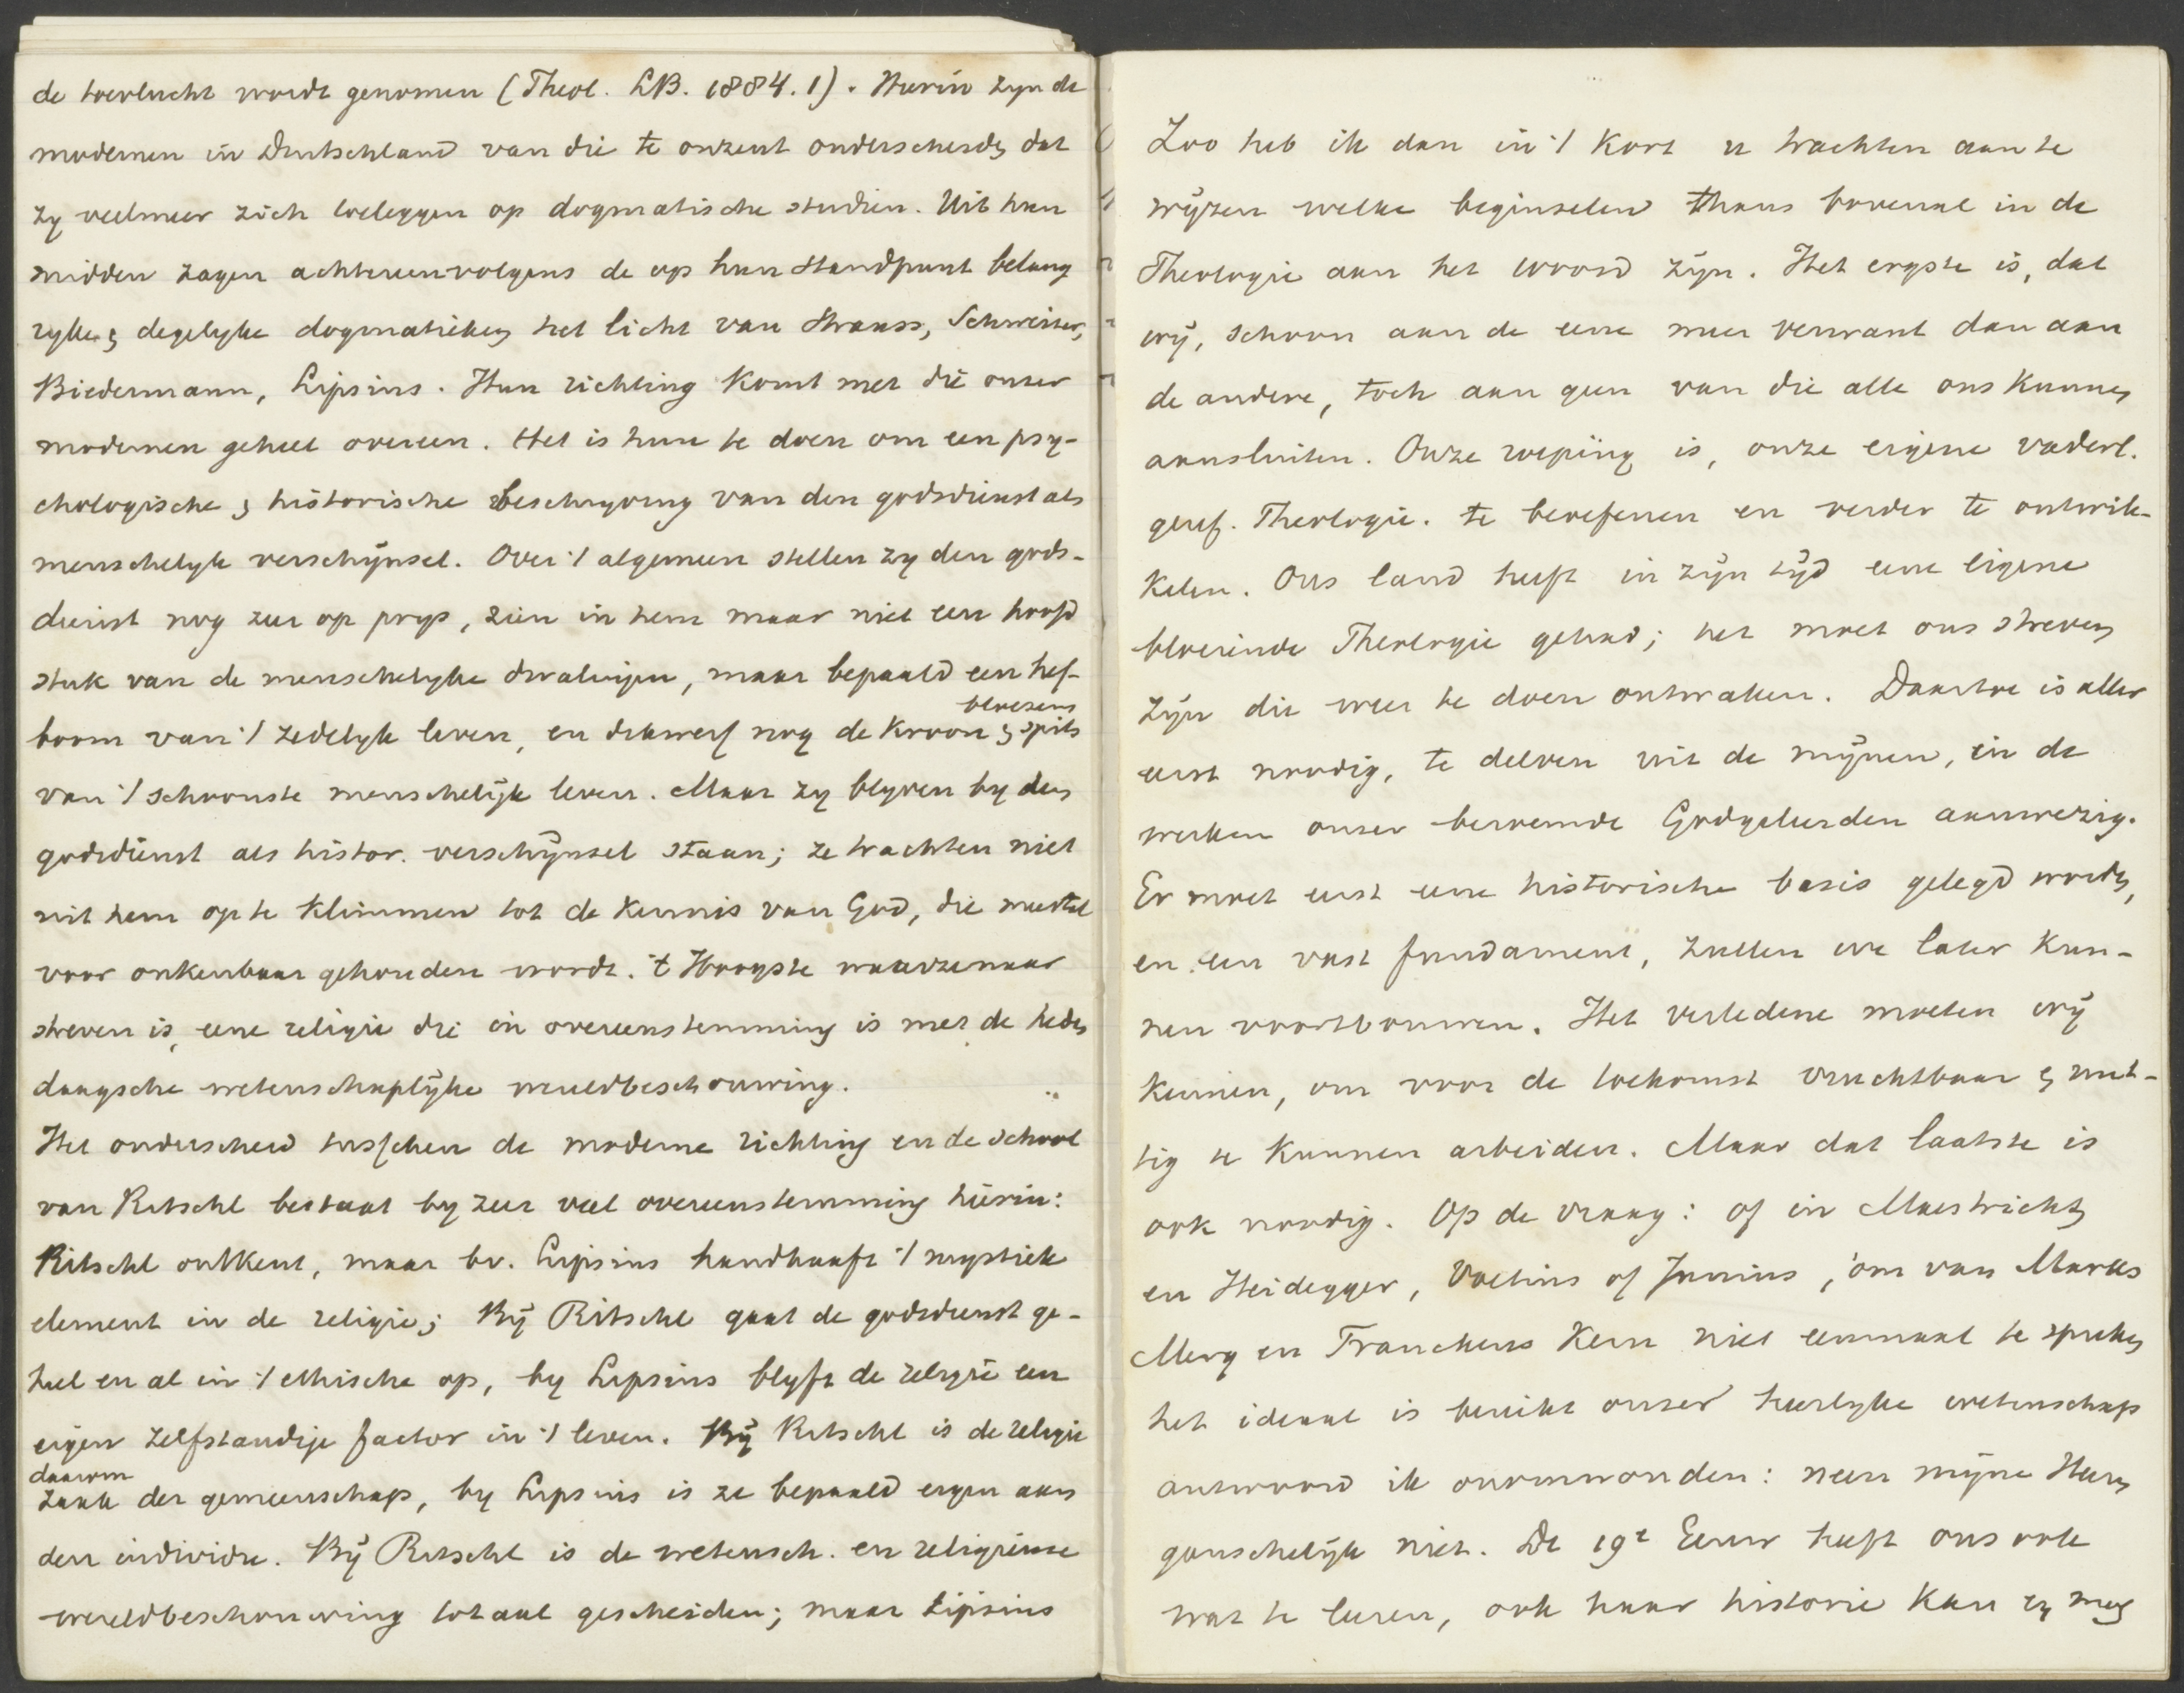 de toevlucht wordt genomen (Theol. LB. 1884. 1). Hierin zyn de
modernen in Duitschland van die te onzent onderscheiden dat
zy veelmeer zich toeleggen op dogmatische studien. Uit hun
midden zagen achtereenvolgens de op hun standpunt belang
ryke & degelyke dogmatieken het licht van Strauss, Schweizer,
Biedermann, Lipsius. Hun richting komt met die onzer
modernen geheel overeen. Het is hun te doen om een psy-
chologische & historische beschryving van den godsdienst als
menschelyk verschijnsel. Over 't algemeen stellen zy den gods-
dienst nog zeer op prys, zien in hem maar niet een hoofd
stuk van de menschelyke dwalingen, maar bepaald een hef-
boom van 't zedelyk leven, en dikwerf nog de kroon & spits
van 't schoonste menschelijk leven. Maar zy blyven by den
godsdienst als histor. verschijnsel staan; ze trachten niet
uit hem op te klimmen tot de kennis van God, die meestal
voor onkenbaar gehouden wordt. 't Hoogste waarzenaar
streven is, eene religie die in overeenstemming is met de heden
daagsche wetenschaplijke wereldbeschouwing.
Het onderscheid tusschen de moderne richting en de school
van Ritschl bestaat by zeer veel overeenstemming hierin:
Ritschl ontkent, maar bv. Lipsius handhaaft 't mystiek
element in de religie; Bij Ritschl gaat de godsdienst ge-
heel en al in 't ethische op, by Lipsius blyft de religie een
eigen zelfstandige factor in 't leven. Bij Ritschl is de religie
daarom
zaak der gemeenschap, by Lipsius is ze bepaald eigen aan
den individu. Bij Ritschl is de wetensch. en religieuse
wereldbeschouwing totaal gescheiden; maar Lipsius
Zoo heb ik dan in 't kort u trachten aan te
wijzen welke beginselen thans bovenal in de
Theologie aan het woord zijn. Het ergste is, dat
wij, schoon aan de eene meer verwant dan aan
de andere, toch aan geen van die alle ons kunnen
aansluiten. Onze roeping is, onze eigene vaderl.
geref. Theologie. te beoefenen en verder te ontwik-
kelen. Ons land heeft in zijn tijd eene eigene
bloeiende Theologie gehad; het moet ons streven
zijn die weer te doen ontwaken. Daartoe is aller
eerst noodig, te delven uit de mijnen, in de
werken onzer beroemde Godgeleerden aanwezig.
Er moet eerst eene historische basis gelegd worden,
en een vast fundament, zullen we later kun-
nen voortbouwen. Het verledene moeten wij
kennen, om voor de toekomst vruchtbaar & nut-
tig te kunnen arbeiden. Maar dat laatste is
ook noodig. Op de vraag: of in Maestricht
en Heidegger, Voetius of Junius, om van Marcks
Merg en Franckens Kern niet eenmaal te spreken
het ideaal is bereikt onzer heerlyke wetenschap
antwoord ik onomwonden: neen mijne Heeren
ganschelijk niet. De 19e Eeuw heeft ons ook
wat te leeren, ook haar historie kan en mag